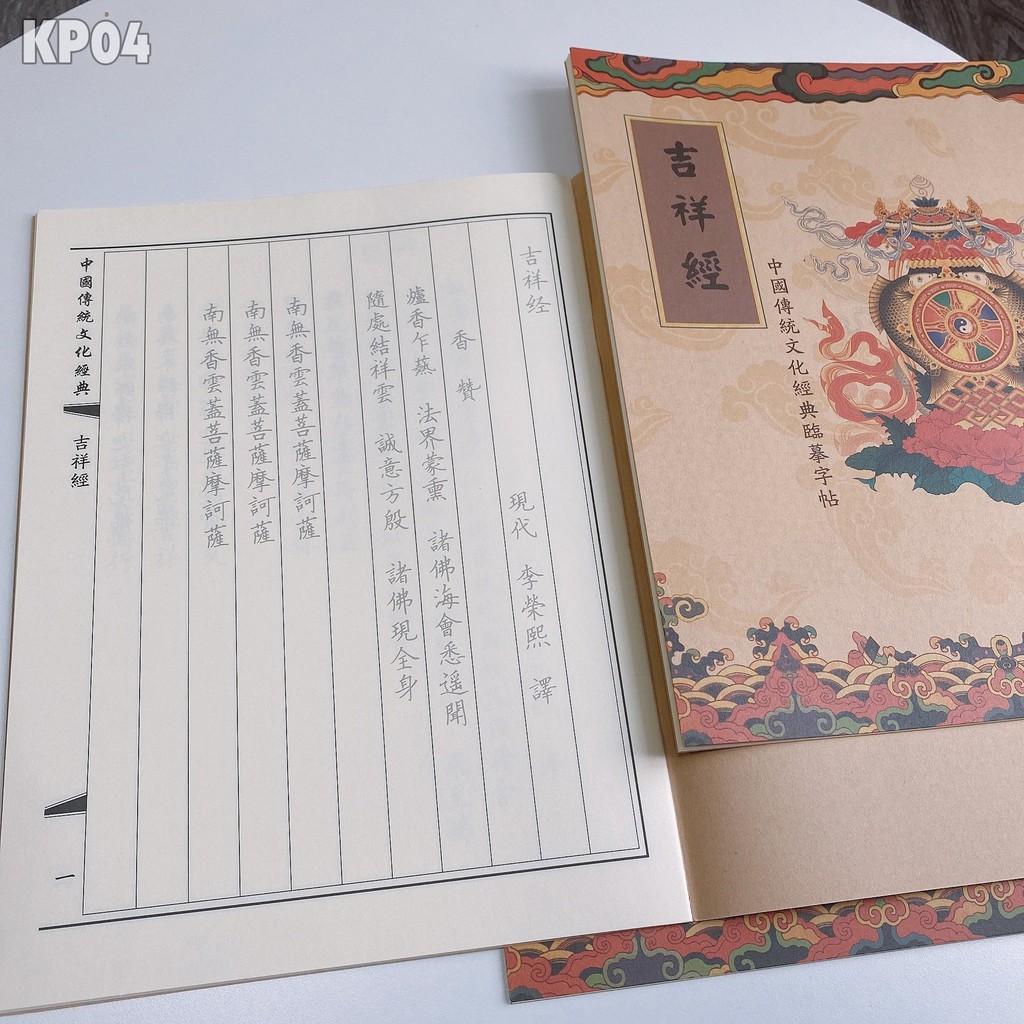 KP04
吉祥經
中國傳統文化經典臨摹字帖
吉祥经
現代 李榮熙 譯
香 贊
爐香乍爇 法界蒙熏 諸佛海會悉遥聞
隨處結祥雲 誠意方殷 諸佛現全身
南無香雲蓋菩薩摩訶薩
南無香雲蓋菩薩摩訶薩
南無香雲蓋菩薩摩訶薩
中國傳統文化經典
吉祥經
一